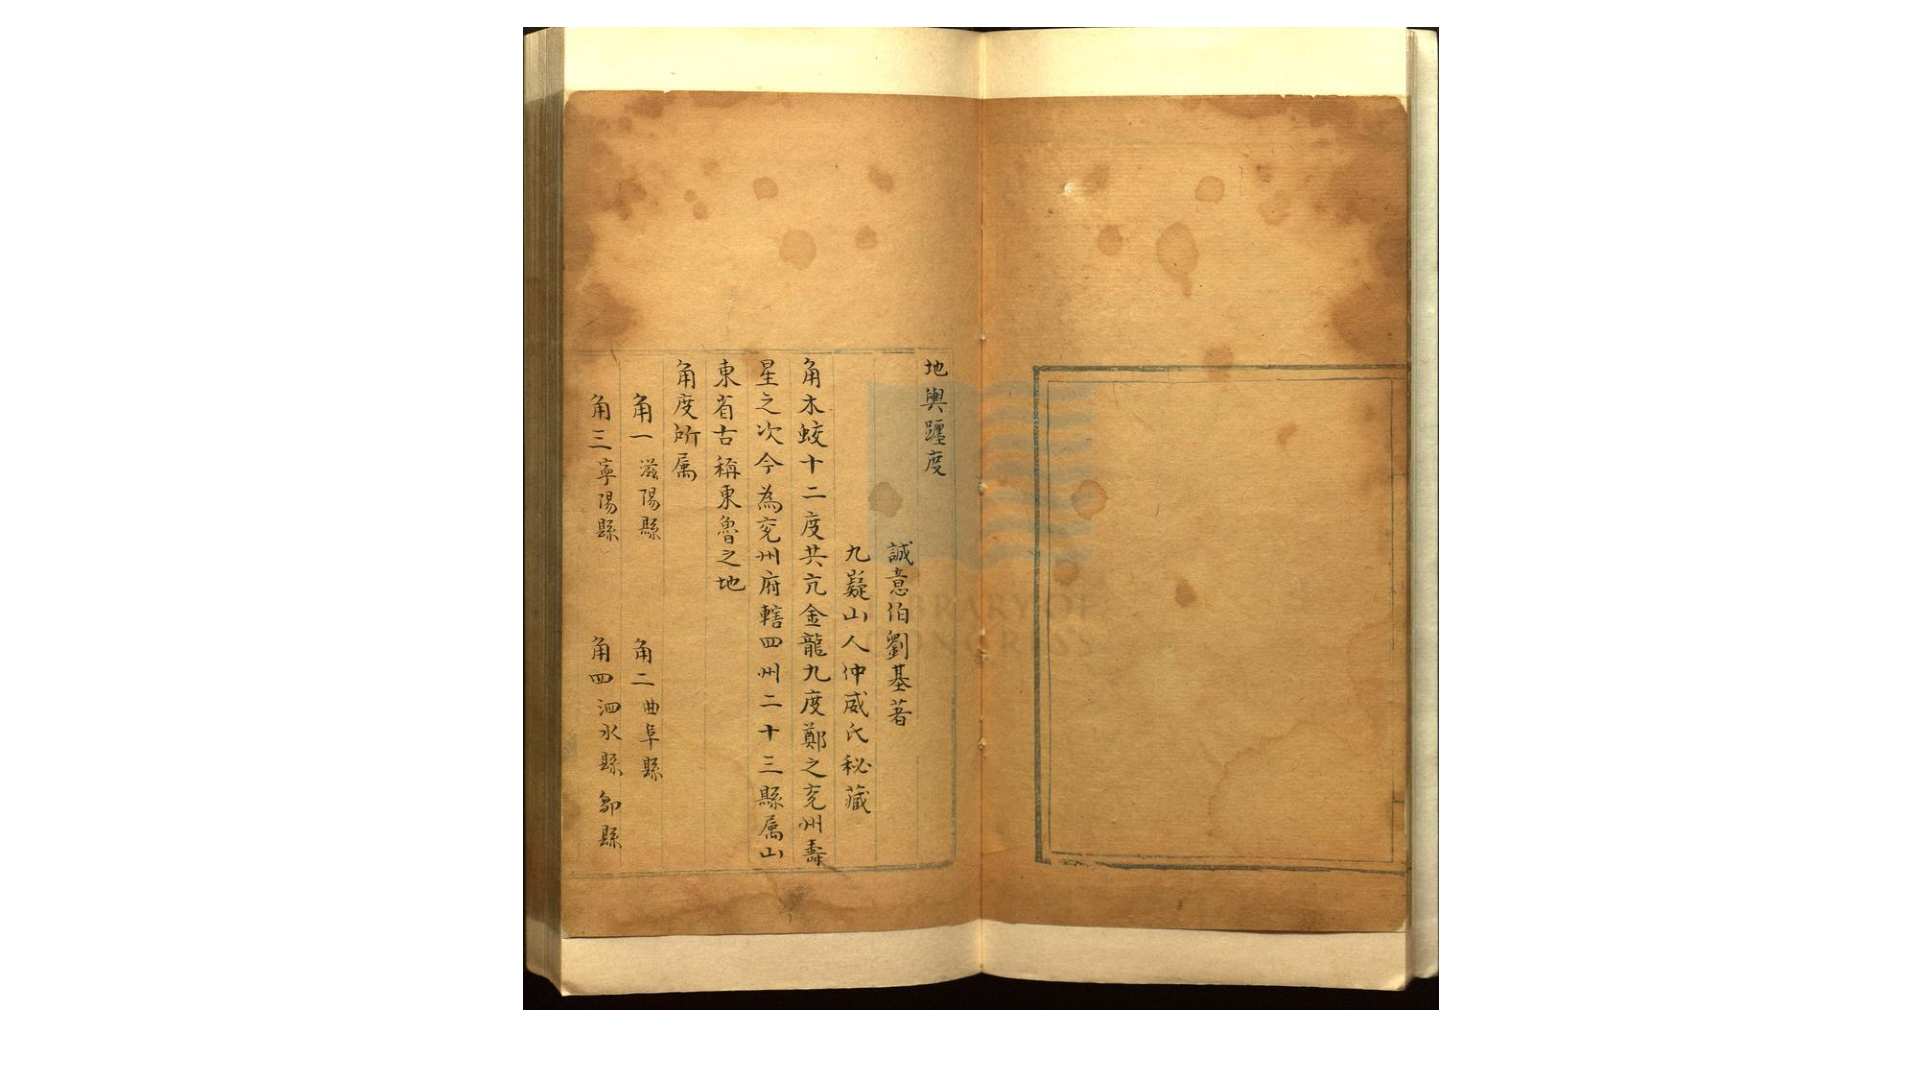 地輿躔度
誠意伯劉基著
九嶷山人仲咸氏秘藏
角木蛟十二度共亢金龍九度鄭之兖州壽
星之次今為兖州府轄四州二十三縣属山
東省古稱東魯之地
角度所属
角一 滋陽縣 角二 曲阜縣
角三 寧陽縣 角四 泗水縣 鄒縣
LIBRARY OF
CONGRESS